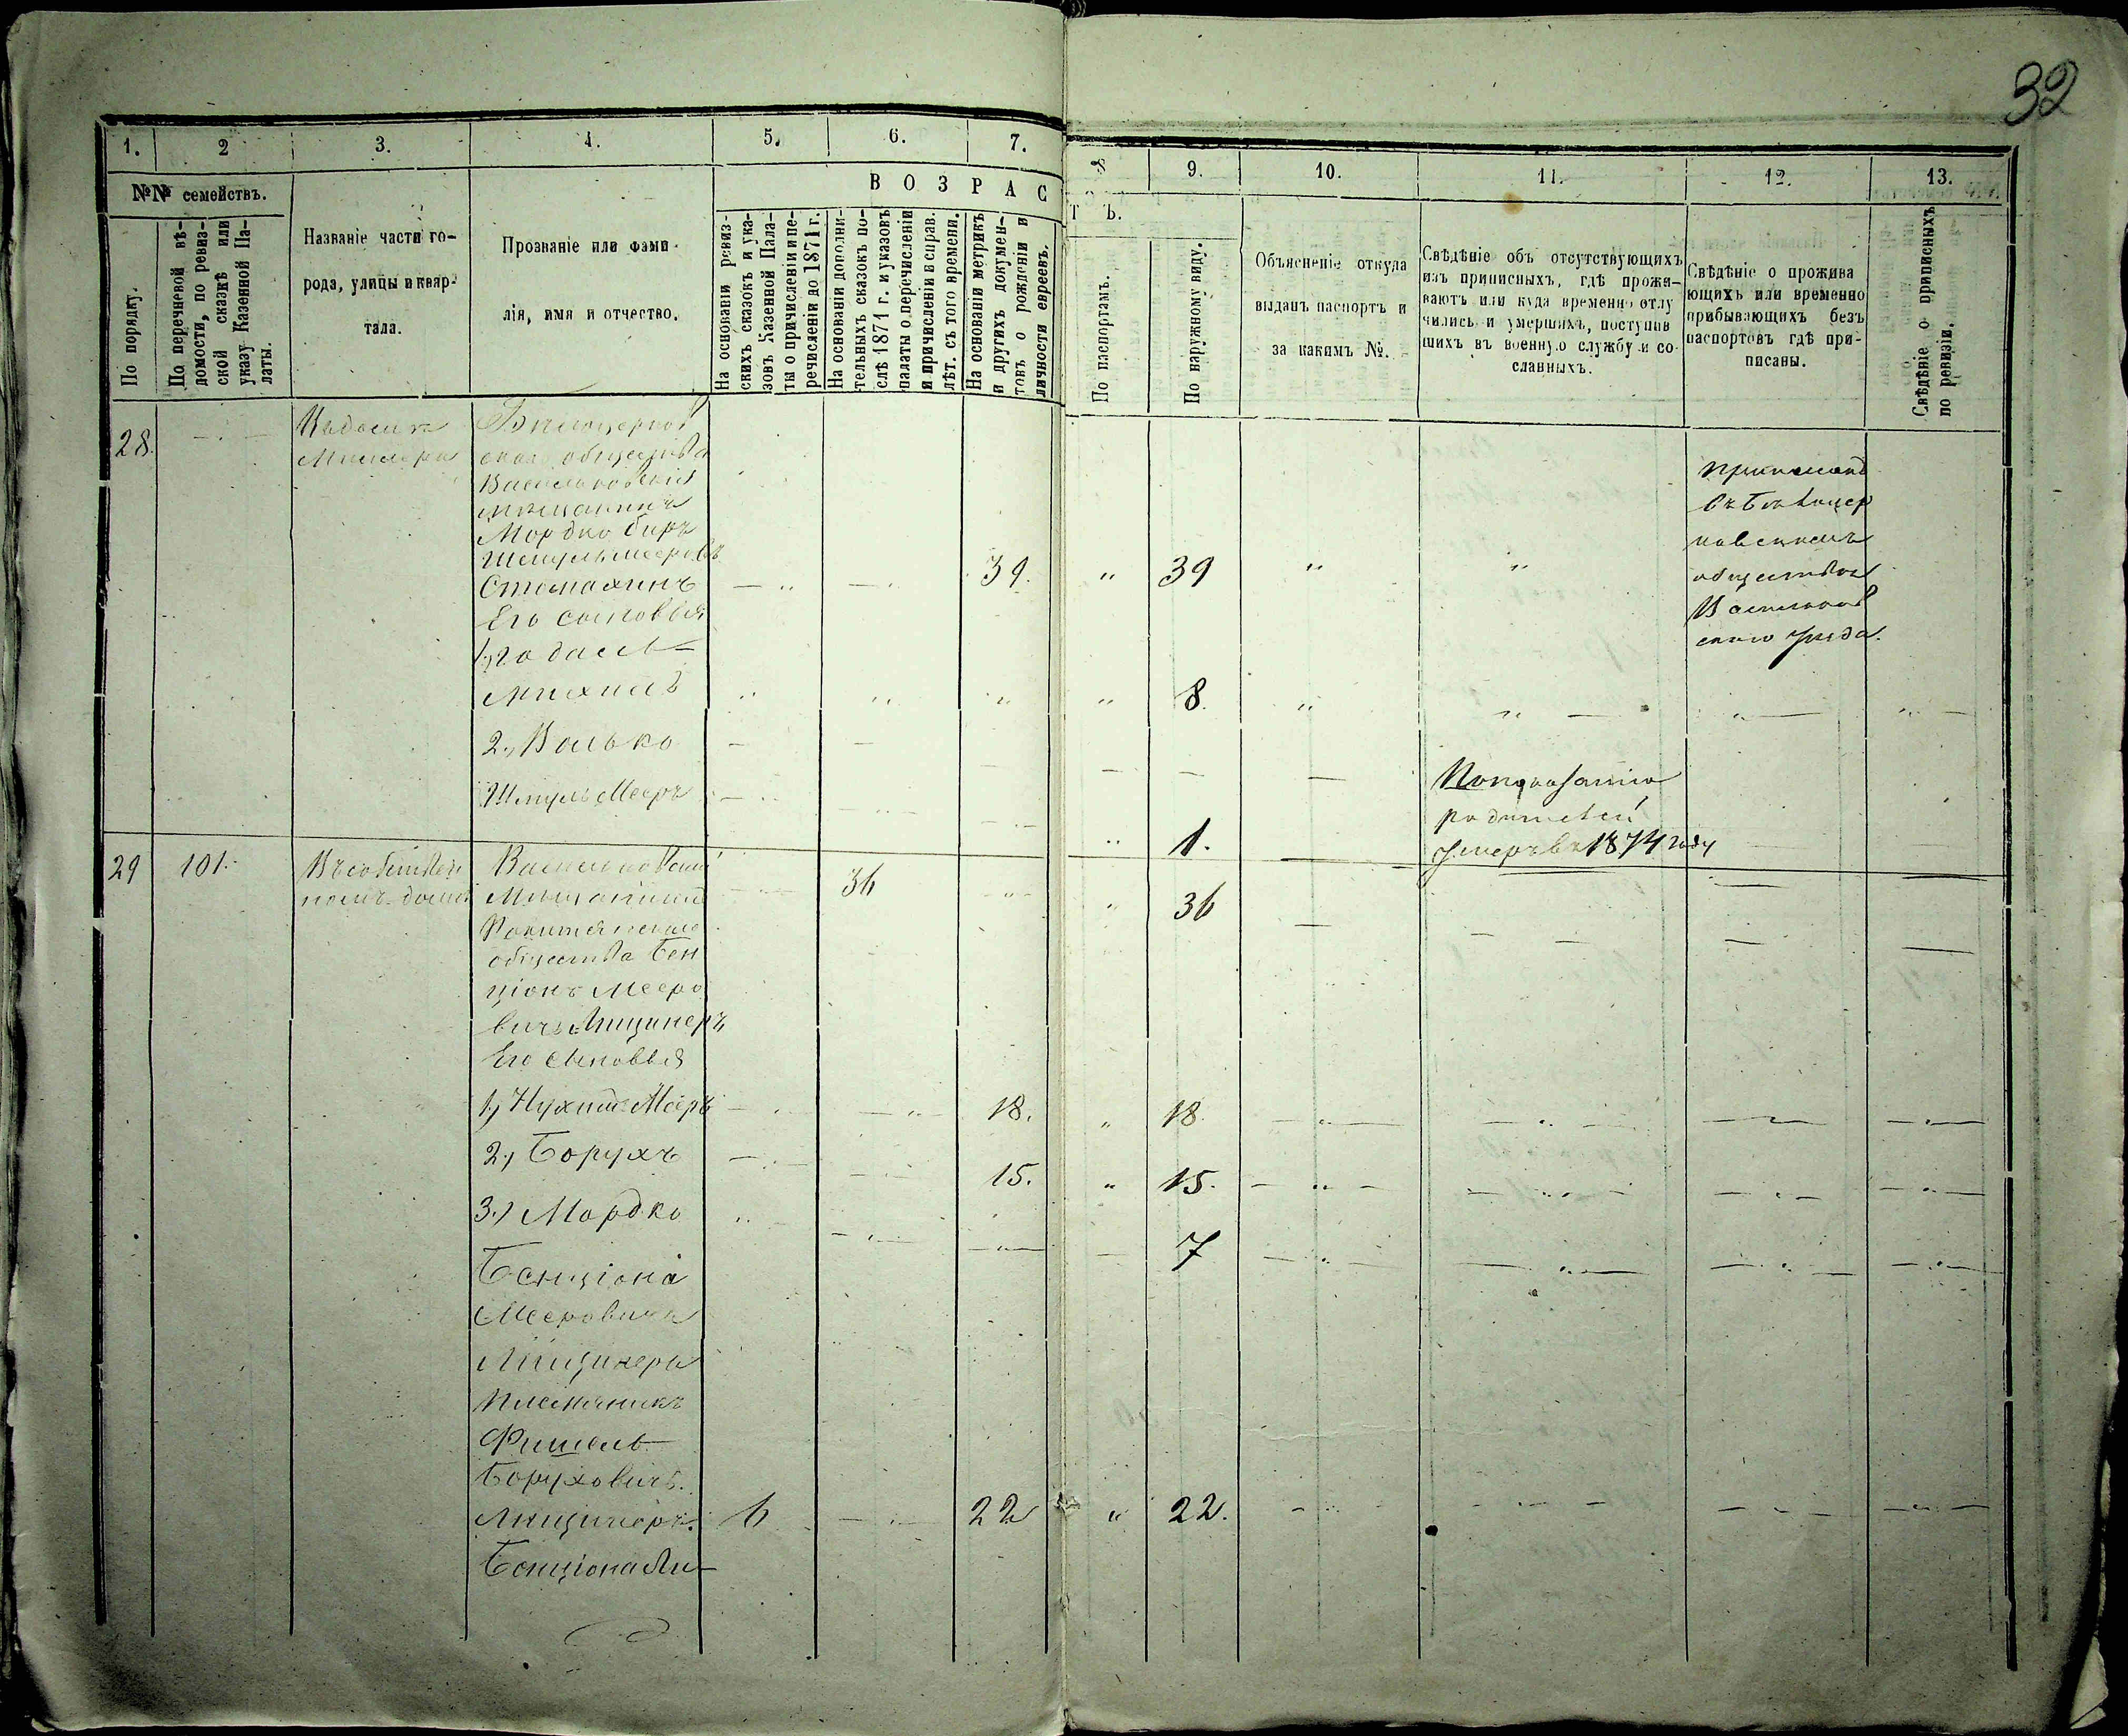 32
1. 2 3. 4. 5. 6. 7. 8 9. 10. 11. 12. 13.
№№ семействъ.
По порядку.
По перечневой вѣ-
домости, по ревиз-
ской сказкѣ или
указу Казенной Па-
латы.
Названіе части го-
рода, улицы и квар-
тала.
Прозваніе или фами-
лія, имя и отчество.
ВОЗРАС
ТЪ.
На основаніи ревиз-
скихъ сказокъ и ука-
зовъ Казенной Пала-
ты о причисленіи и пе-
речисленіи до 1871 г.
На основаніи дополни-
тельныхъ сказокъ по-
слѣ 1871 г. и указовъ
палаты о перечисленіи
и причисленіи и справ.
лѣт. съ того времени.
На основаніи метрикъ
и другихъ докумен-
товъ о рожденіи и
личности евреевъ.
По паспортамъ.
По наружному виду.
Объясненіе откуда
выданъ паспортъ и
за какимъ №.
Свѣдѣніе объ отсутствующихъ
изъ приписныхъ, гдѣ прожи-
ваютъ или куда временно отлу
чились и умершихъ, поступив
шихъ въ военную службу и со-
сланныхъ.
Свѣдѣніе о прожива
ющихъ или временно
прибывающихъ безъ
паспортовъ гдѣ при-
писаны.
Свѣдѣніе о приписныхъ
по ревизіи.
28.
скаго общества
Васильковскій
мѣщанинъ
Мордко Беръ
Шмуль Мееровъ
Стомахинъ 39. " 39 " "
Его сыновья
1,
Михилъ " " " " 8. " " " "
2., Волько
Шмуль Мееръ " 1.
приписанъ
обществѣ
Васильков
скаго уѣзда.
По показанію
родителей
умеръ въ 1874 году
29 101. Въ собствен
номъ домѣ
Васильковскій
Мѣщанинъ 36 " " 36
общества Бен
ціонъ Мееро
вичъ Лищинеръ
Его сыновья
1, Нухимъ Мееръ 18. " 18
2, Борухъ 15. " 15.
3, Мордко 7
Бенціона
Мееровича
Лищинера
племянникъ
Фишель
Боруховичъ
Лищинеръ. 6 22 " 22.
Бенціона Ли-